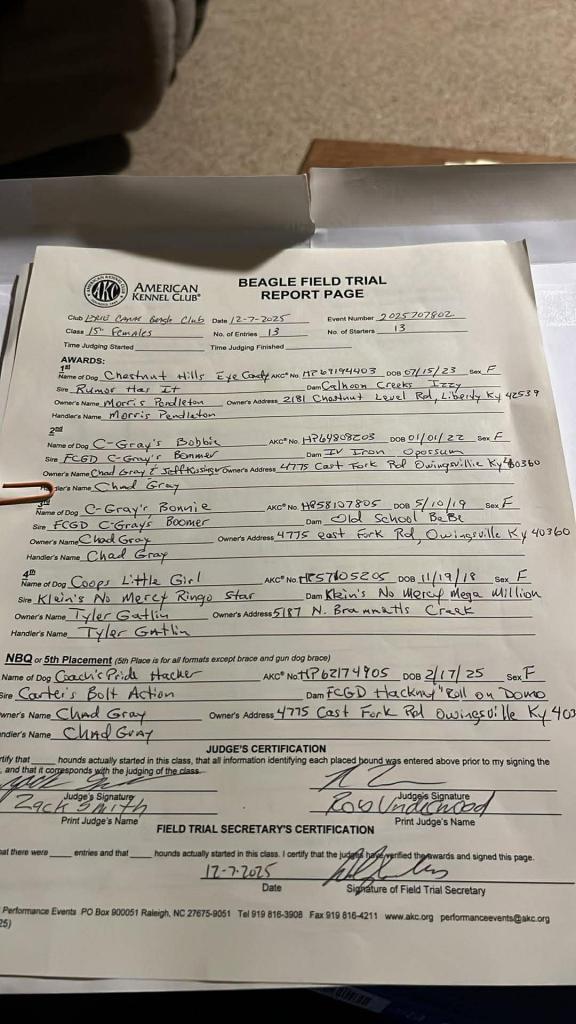 AMERICAN KENNEL CLUB
AKC
AMERICAN
KENNEL CLUB®
BEAGLE FIELD TRIAL
REPORT PAGE
Club Beagle Club Date 12-7-2025 Event Number 2025707802
Class 15" Females No. of Entries 13 No. of Starters 13
Time Judging Started Time Judging Finished
AWARDS:
1st
Name of Dog Chestnut Hills Eye Candy AKC® No. HP67194403 DOB 07/15/23 Sex F
Sire Rumor Has It Dam Calhoon Creeks Izzy
Owner's Name Morris Pendleton Owner's Address 2181 Chestnut Level Rd, Liberty Ky 42539
Handler's Name Morris Pendleton
2nd
Name of Dog C-Gray's Bobbie AKC® No. HP64808203 DOB 01/01/22 Sex F
Sire FCGD C-Gray's Dam IV Iron Opossum
Owner's Name Chad Gray & Jeff Kissinger Owner's Address 4775 East Fork Rd Owingsville Ky 40360
dler's Name Chad Gray
3rd
Name of Dog C-Gray's Bonnie AKC® No. HP58107805 DOB 5/10/19 Sex F
Sire FCGD C-Grays Boomer Dam Old School BeBe
Owner's Name Chad Gray Owner's Address 4775 east Fork Rd, Owingsville Ky 40360
Handler's Name Chad Gray
4th
Name of Dog Coops Little Girl AKC® No. HP57605205 DOB 11/19/18 Sex F
Sire Klein's No Mercy Ringo Star Dam Klein's No Mercy Mega Million
Owner's Name Tyler Gatlin Owner's Address 5187 N. Creek
Handler's Name Tyler Gatlin
NBQ or 5th Placement (5th Place is for all formats except brace and gun dog brace)
Name of Dog Coach's Pride Hacker AKC® No HP62174905 DOB 2/17/25 Sex F
Sire Carter's Bolt Action Dam FCGD Roll on Domo
wner's Name Chad Gray Owner's Address 4775 East Fork Rd Owingsville Ky 403
ndler's Name Chad Gray
JUDGE'S CERTIFICATION
rtify that hounds actually started in this class, that all information identifying each placed hound was entered above prior to my signing the
, and that it corresponds with the judging of the class.
Judge's Signature Judge's Signature
Zack Smith Rob Underwood
Print Judge's Name Print Judge's Name
FIELD TRIAL SECRETARY'S CERTIFICATION
hat there were entries and that hounds actually started in this class. I certify that the judges have verified the awards and signed this page.
12-7-2025
Date Signature of Field Trial Secretary
Performance Events PO Box 900051 Raleigh, NC 27675-9051 Tel 919 816-3908 Fax 919 816-4211 www.akc.org performanceevents@akc.org
25)